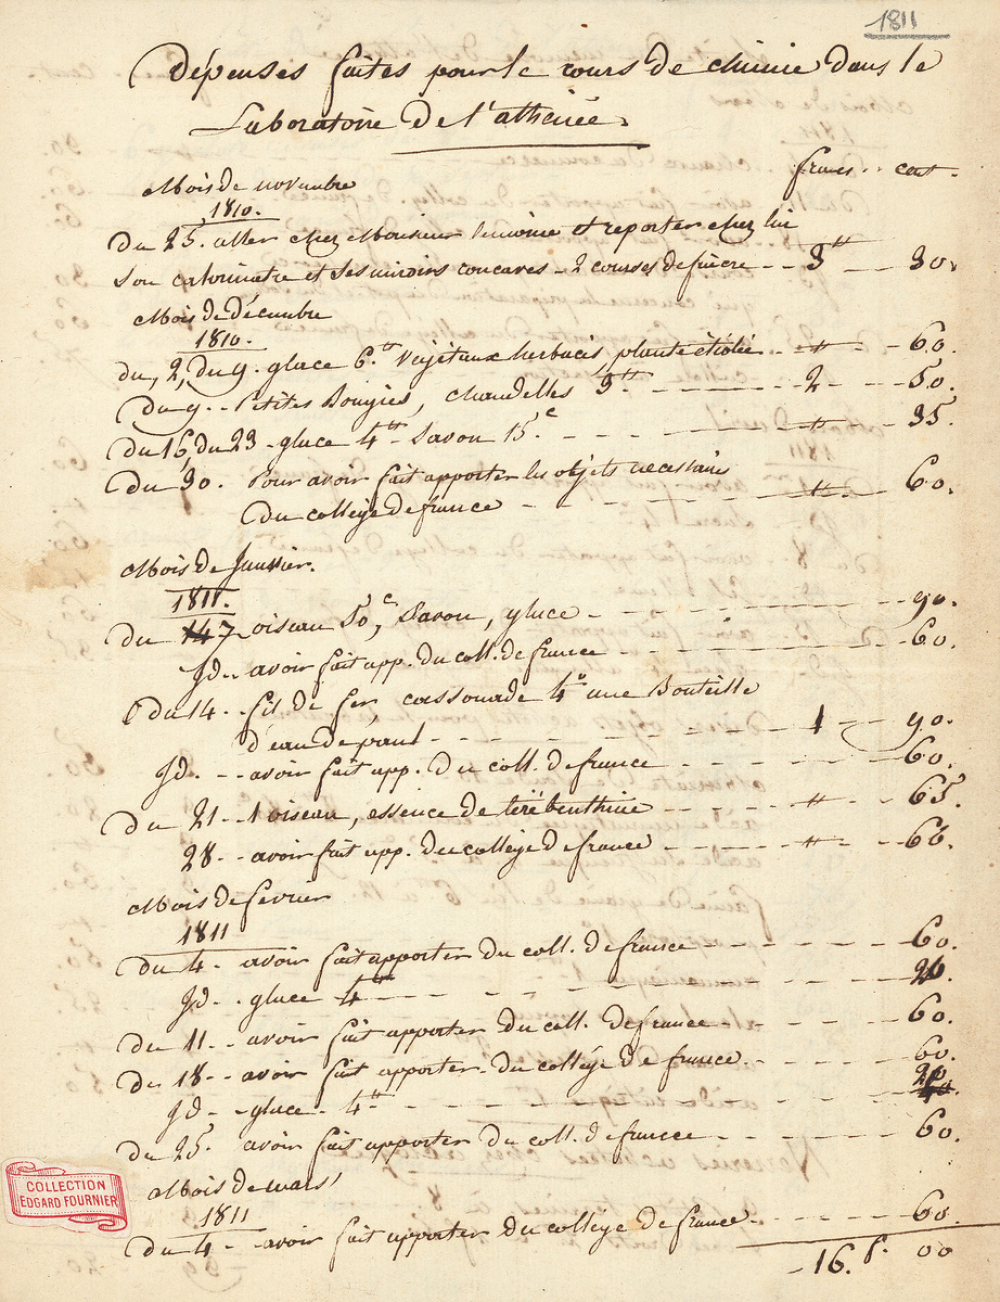 1811
Dépenses faites pour le cours de chimie dans le
Laboratoire de l'athénée.
francs .. cent.
Mois de novembre
1810.
Du 25. aller chez Monsieur Lemoine et reporter chez lui
Son calorimètre et ses miroirs concaves - 2 courses de fiacre - - 3tt - - 30.
Mois de décembre
1810.
du, 2, du 9. glace 6.tt végétaux herbacés, plante étiolée - - tt - - 60.
Du 9. - Petites Bougies, chandelles 3tt - - - 2 - - 50.
Du 16, du 23 - glace 4tt - Savon 15.c - - - tt - - 35.
Du 30. Pour avoir fait apporter les objets necessaire
Du collège de france - - - tt - - 60.
Mois de Janvier.
1811.
Du 7 oiseau 50c, Savon, glace - - - 90.
Jd - - avoir fait app. du coll. de france - - - 60.
Du 14. - fil de fer cassonade 4o une Bouteille
d'eau de - - - 1 - - 90.
Jd. - - avoir fait app. Du coll. de france - - - 60.
Du 21 - - 1 oiseau, essence de térébenthine - - tt - - 65.
28 - - avoir fait app. du collège de france - - tt - - 60.
Mois de fevrier
1811
Du 4 - avoir fait apporter du coll. de france - - - 60.
Jd - . glace 4tt - - - 20.
Du 11. - - avoir fait apporter du coll. de france - - - 60.
Du 18 - - avoir fait apporter - du collége de france - - - 60.
Jd - - glace - 4tt - - - 20
Du 25. avoir fait apporter du coll. de france - - - 60.
Mois de mars
1811
Du 4 - - avoir fait apporter du collége de france - - - 60.
- 16. f. 00
COLLECTION
EDGARD FOURNIER